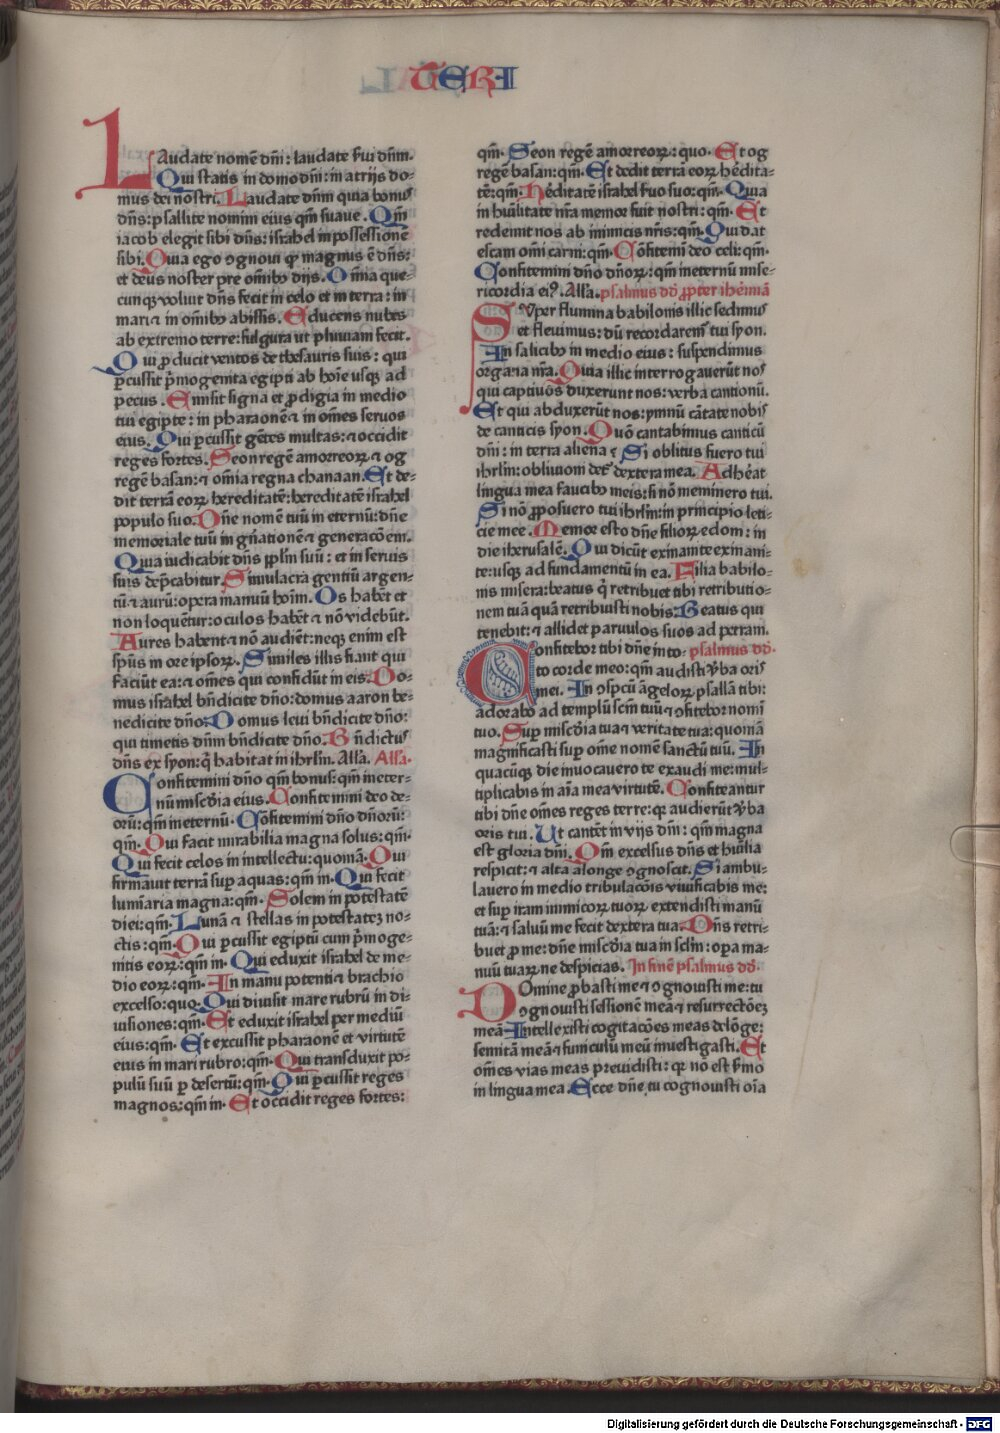 TERI
Laudate nomē dn̄i: laudate ẜui dn̄m.
Qui statis in domo dn̄i: in atrijs do⸗
mus dei nostri. Laudate dn̄m quia bonus
dn̄s: psallite nomini eius qm̄ suaue. Qm̄
iacob elegit sibi dn̄s: israhel in possessionē
sibi. Quia ego ꝯgnoui ꝙ magnus ē dn̄s:
et deus noster pre om̄ibꝰ dijs. Om̄ia que⸗
cunqꝫ voluit dn̄s fecit in celo et in terra: in
mari ⁊ in om̄ibꝰ abissis. Educens nubes
ab extremo terre: fulgura ut pluuiam fecit.
Qui ꝓducit ventos de thesauris suis: qui
ꝑcussit p̄mogenita egipti ab hoīe usqꝫ ad
pecus. Emisit signa et ꝓdigia in medio
tui egipte: in pharaonē ⁊ in om̄es seruos
eius. Qui ꝑcussit gētes multas: ⁊ occidit
reges fortes. Seon regē amorreoꝝ ⁊ og
regē basan: ⁊ om̄ia regna chanaan. Et de⸗
dit terrā eoꝝ hereditatē: hereditatē israhel
populo suo. Dn̄e nomē tuū in eternū: dn̄e
memoriale tuū in gn̄ationē ⁊ generacōem.
Quia iudicabit dn̄s pplm̄ suū: et in seruis
suis dep̄cabitur. Simulacra gentiū argen⸗
tū ⁊ aurū: opera manuū hoīm. Os habēt et
non loquētur: oculos habēt ⁊ nō videbūt.
Aures habent ⁊ nō audiēt: neqꝫ enim est
sp̄us in ore ipsoꝝ. Similes illis fiant qui
faciūt ea: ⁊ om̄es qui confidūt in eis. Do⸗
mus israhel bn̄dicite dn̄o: domus aaron be⸗
nedicite dn̄o. Domus leui bn̄dicite dn̄o:
qui timetis dn̄m bn̄dicite dn̄o. Bn̄dictus
dn̄s ex syon: q̄ habitat in ihrl̄m. Alla. Alla.
Confitemini dn̄o qm̄ bonus: qm̄ in eter⸗
nū mīscd̄ia eius. Confitemini deo de⸗
orū: qm̄ in eternū. Cōfitemini dn̄o dn̄orū:
qm̄. Qui facit mirabilia magna solus: qm̄.
Qui fecit celos in intellectu: quomā. Qui
firmauit terrā suꝑ aquas: qm̄ in. Qui fecit
luminaria magna: qm̄. Solem in potestatē
diei: qm̄. Lunā ⁊ stellas in potestateꝫ no⸗
ctis: qm̄. Qui ꝑcussit egiptū cum p̄moge⸗
nitis eoꝝ: qm̄ in. Qui eduxit israhel de me⸗
dio eoꝝ: qm̄. In manu potenti ⁊ brachio
excelso: quo. Qui diuisit mare rubrū in di⸗
uisiones: qm̄. Et eduxit israhel per mediū
eius: qm̄. Et excussit pharaonē et virtutē
eius in mari rubro: qm̄. Qui transduxit po⸗
pulū suū ꝑ desertū: qm̄. Qui ꝑcussit reges
magnos: qm̄ in. Et occidit reges fortes:
qm̄. Seon regē amorreoꝝ: quo. Et og
regē basan: qm̄. Et dedit terrā eoꝝ hēdita⸗
tē: qm̄. Hēditatē israhel ẜuo suo: qm̄. Quia
in hūilitate nr̄a memor fuit nostri: qm̄. Et
redemit nos ab inimicis nr̄is: qm̄. Qui dat
escam om̄i carni: qm̄. Cōfitemī deo celi: qm̄.
Confitemini dn̄o dn̄oꝝ: qm̄ in eternū mise⸗
ricordia eiꝰ. Alla. psalmus dd̄ ꝓpter iheremiā
Super flumina babilonis illic sedimus
et fleuimus: dū recordaremͬ tui syon.
In salicibꝰ in medio eius: suspendimus
organa nr̄a. Quia illic interrogauerūt nos
qui captiuos duxerunt nos: verba cantionū.
Et qui abduxerūt nos: ymnū cātate nobis
de canticis syon. Quō cantabimus canticū
dn̄i: in terra aliena? Si oblitus fuero tui
ihrl̄m: obliuioni detͬ dextera mea. Adhēat
lingua mea faucibꝰ meis: si nō meminero tui.
Si nō ꝓposuero tui ihrl̄m: in principio leti⸗
cie mee. Memor esto dn̄e filioꝝ edom: in
die iherusalē. Qui dicūt exinanite exinani⸗
te: usqꝫ ad fundamentū in ea. Filia babilo⸗
nis misera: beatus q̄ retribuet tibi retributio⸗
nem tuā quā retribuisti nobis. Beatus qui
tenebit: ⁊ allidet paruulos suos ad petram.
Confitebor tibi dn̄e in to⸗ psalmus dd̄.
to corde meo: qm̄ audisti v̄ba oris
mei. In ꝯspc̄u āgeloꝝ psallā tibi:
adorabo ad templū scm̄ tuū ⁊ ꝯfitebor nomī
tuo. Suꝑ mīscd̄ia tua ⁊ veritate tua: quoniā
magnificasti suꝑ om̄e nomē sanctū tuū. In
quacūqꝫ die inuocauero te exaudi me: mul⸗
tiplicabis in aīa mea virtutē. Confiteantur
tibi dn̄e om̄es reges terre: qꝛ audierūt v̄ba
oris tui. Ut cantēt in vijs dn̄i: qm̄ magna
est gloria dn̄i. Qm̄ excelsus dn̄s et hūilia
respicit: ⁊ alta a longe ꝯgnoscit. Si ambu⸗
lauero in medio tribulacōis viuificabis me:
et suꝑ iram inimicoꝝ tuoꝝ extendisti manū
tuā: ⁊ saluū me fecit dextera tua. Dn̄s retri⸗
buet ꝓ me: dn̄e mīscd̄ia tua in scl̄m: oꝑa ma⸗
nuū tuaꝝ ne despicias. In finē psalmus dd̄.
Domine ꝓbasti me ⁊ ꝯgnouisti me: tu
ꝯgnouisti sessionē meā ⁊ resurrectōeꝫ
meā. Intellexisti cogitacōes meas de lōge:
semitā meā ⁊ funiculū meū inuestigasti. Et
om̄es vias meas preuidisti: qꝛ nō est ẜmo
in lingua mea. Ecce dn̄e tu cognouisti oīa
Digitalisierung gefördert durch die Deutsche Forschungsgemeinschaft - DFG